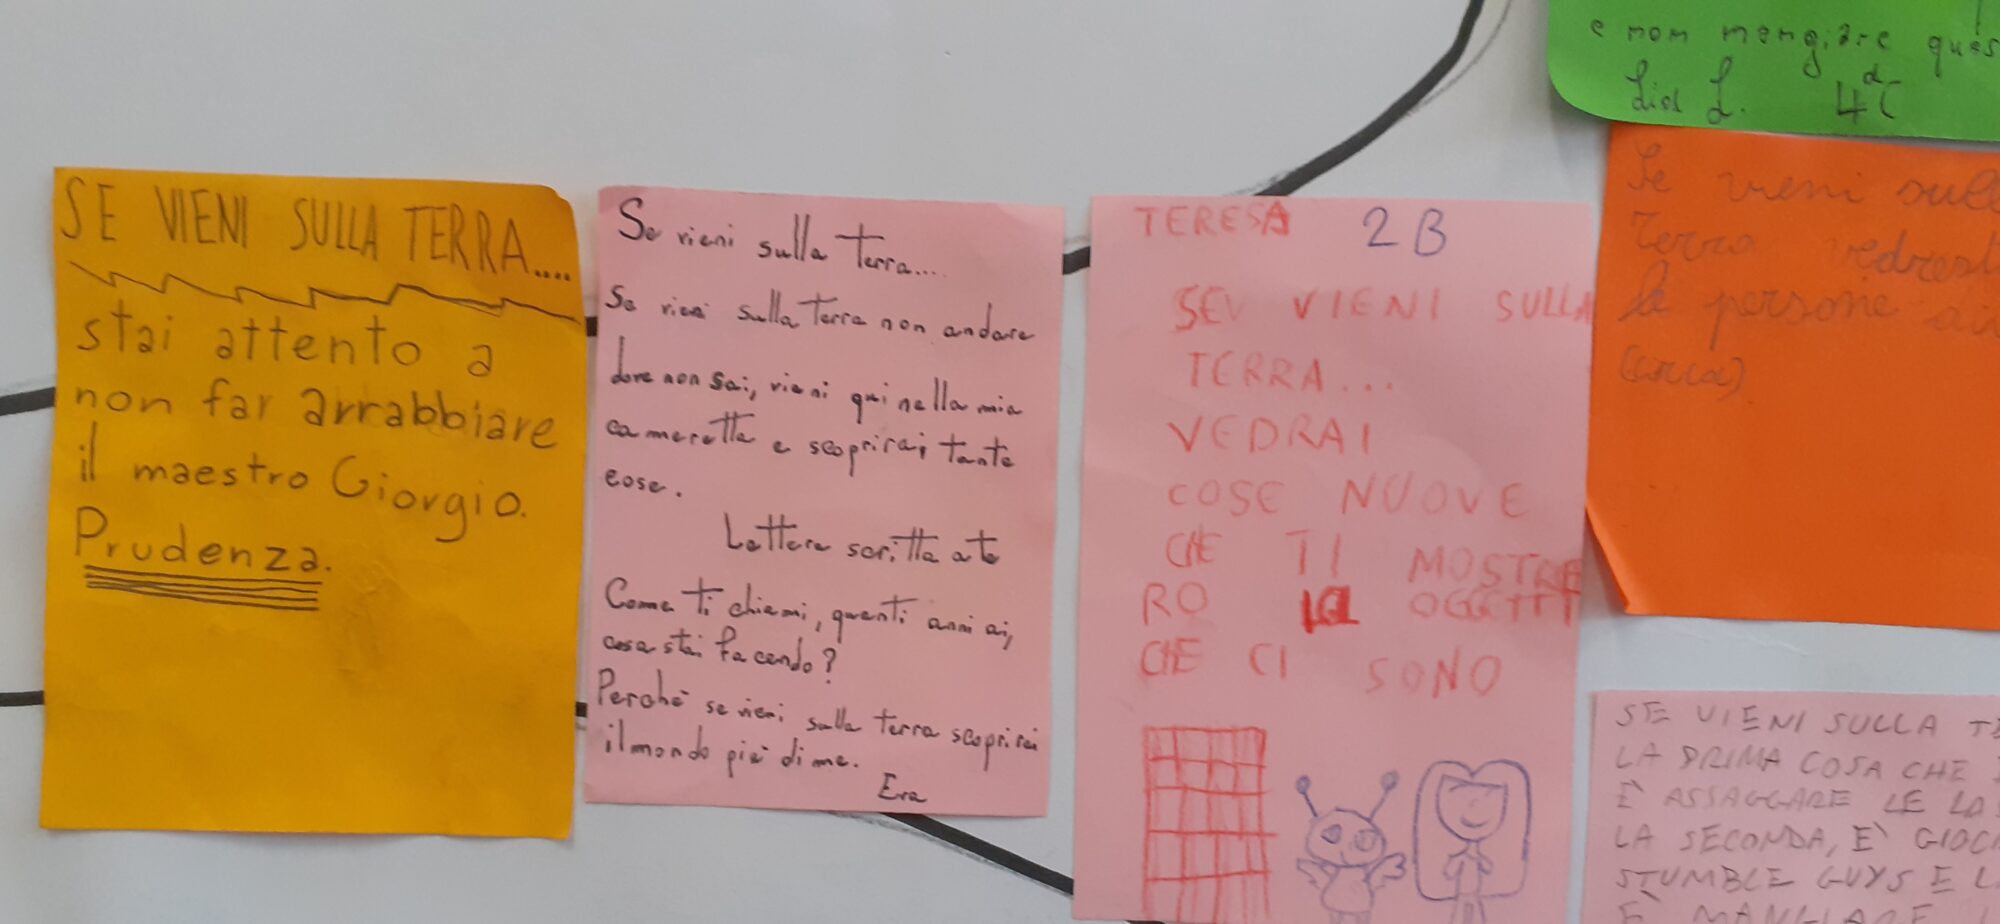 SE VIENI SULLA TERRA....
stai attento a
non far arrabbiare
il maestro Giorgio.
Prudenza.
Se vieni sulla Terra....
Se vieni sulla Terra non andare
dove non sai, vieni qui nella mia
cameretta e scoprirai tante
cose.
Lettera scritta a te
Come ti chiami, quanti anni ai,
cosa stai facendo?
Perchè se vieni sulla terra scoprirai
il mondo più di me.
Era
TERESA 2B
SEU VIENI SULLA
TERRA...
VEDRAI
COSE NUOVE
CHE TI MOSTRE
RO OGGETTI
CHE CI SONO
e non mangiare ques
4ª C
Se vieni sull
Terra vedrest
le persone
SE VIENI SULLA TE
LA PRIMA COSA CHE
È ASSAGGARE LE LA
LA SECONDA, È GIOC
STUMBLE GUYS E L
È MANGIARE